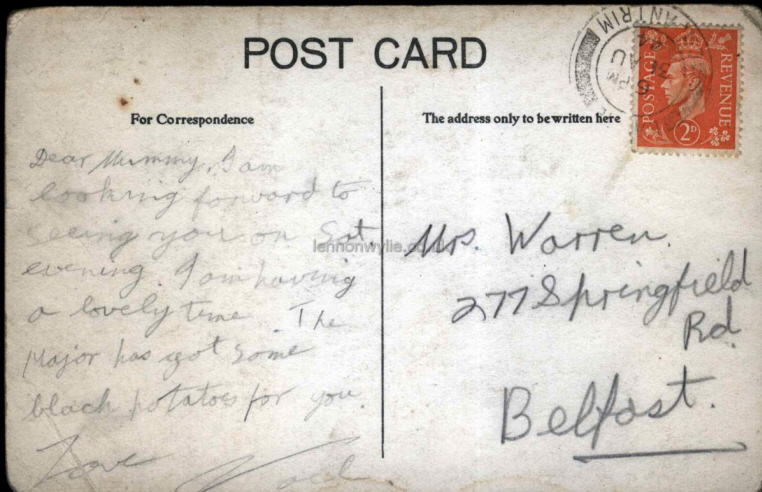 POST CARD
For Correspondence
The address only to be written here
POSTAGE REVENUE
2D
ANTRIM
PM
AU
Dear Mummy, I am
looking forward to
seeing you on Sat
evening. I am having
a lovely time. The
Major has got some
black potatoes for you.
Love
Mrs. Warren.
277 Springfield
Rd.
Belfast.
lennonwylie.co.uk